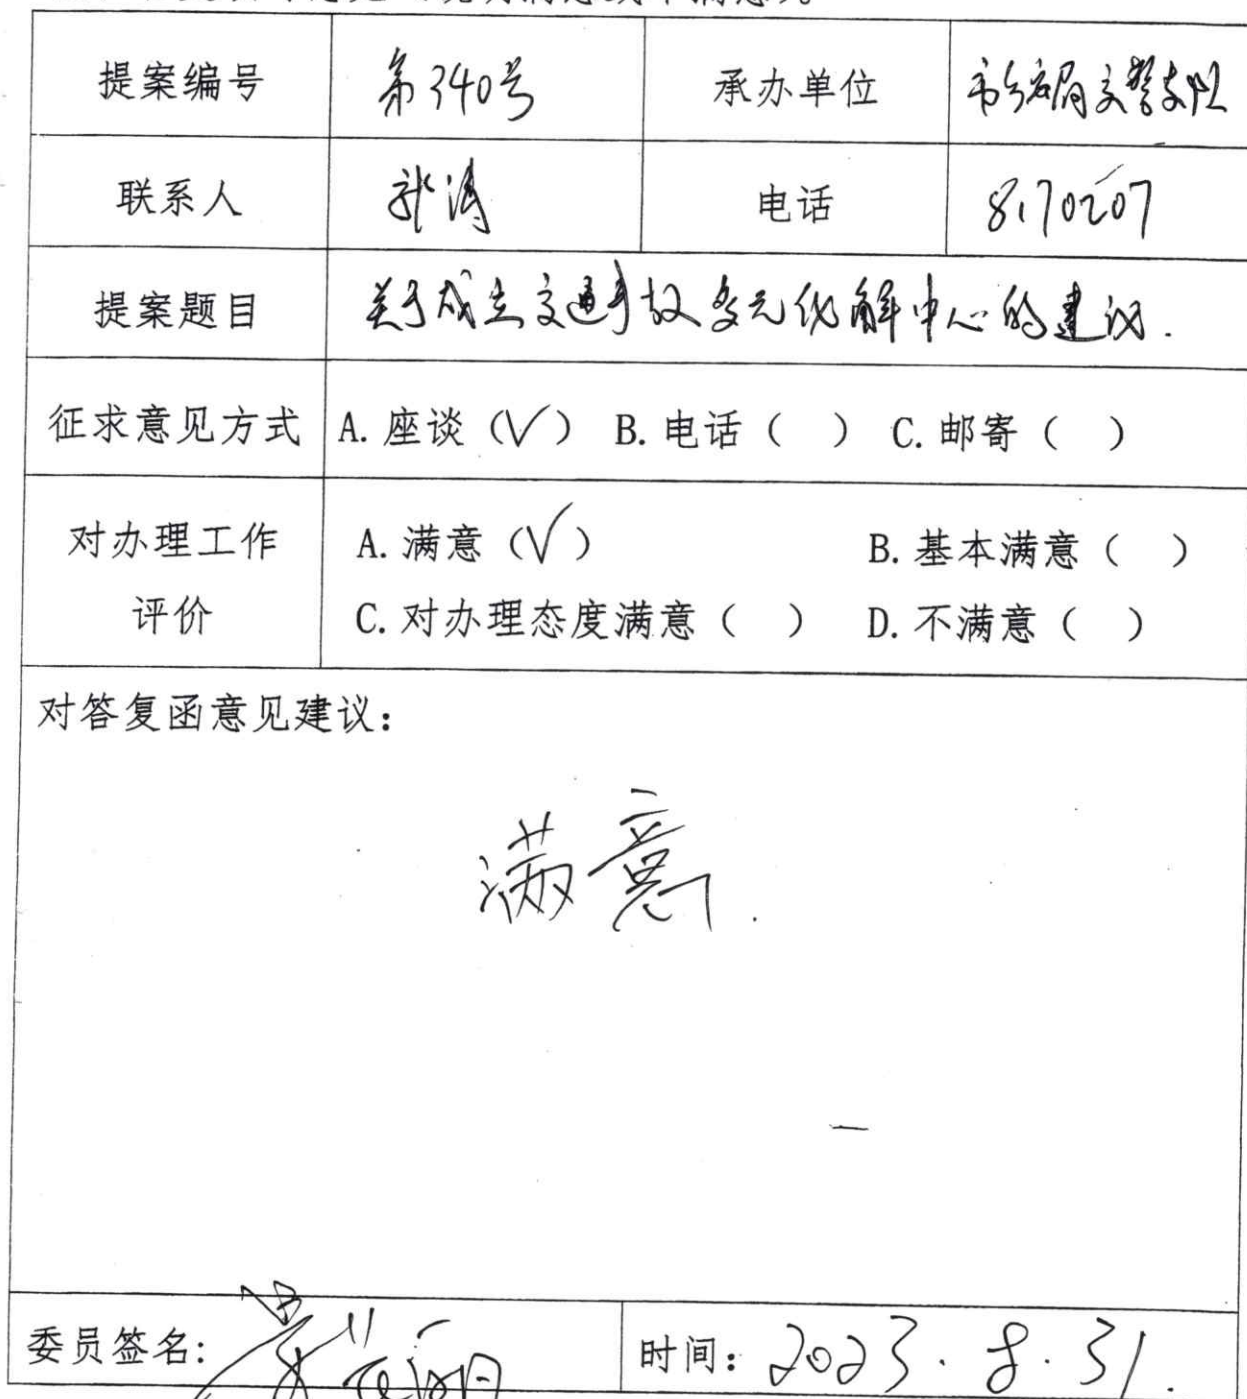 提案编号 第340号 承办单位 市公安局交警支队
联系人 涛 电话 8170207
提案题目 关于成立交通事故多元化解中心的建议.
征求意见方式 A. 座谈（√） B. 电话（ ） C. 邮寄（ ）
对办理工作
评价
A. 满意（√） B. 基本满意（ ）
C. 对办理态度满意（ ） D. 不满意（ ）
对答复函意见建议：
满意.
委员签名: 时间: 2023. 8. 31.